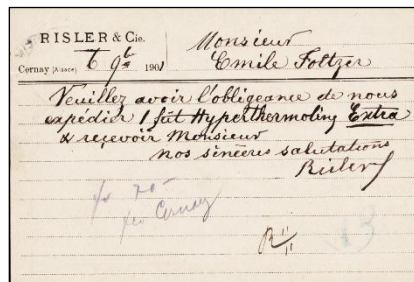 RISLER & Cie.
Cernay (Alsace) 6 9b 1901
Monsieur
Emile Foltzer
Veuillez avoir l'obligeance de nous
expédier 1 fût Hyperthermoline Extra
& recevoir Monsieur
nos sincères salutations
Risler
70
Cernay